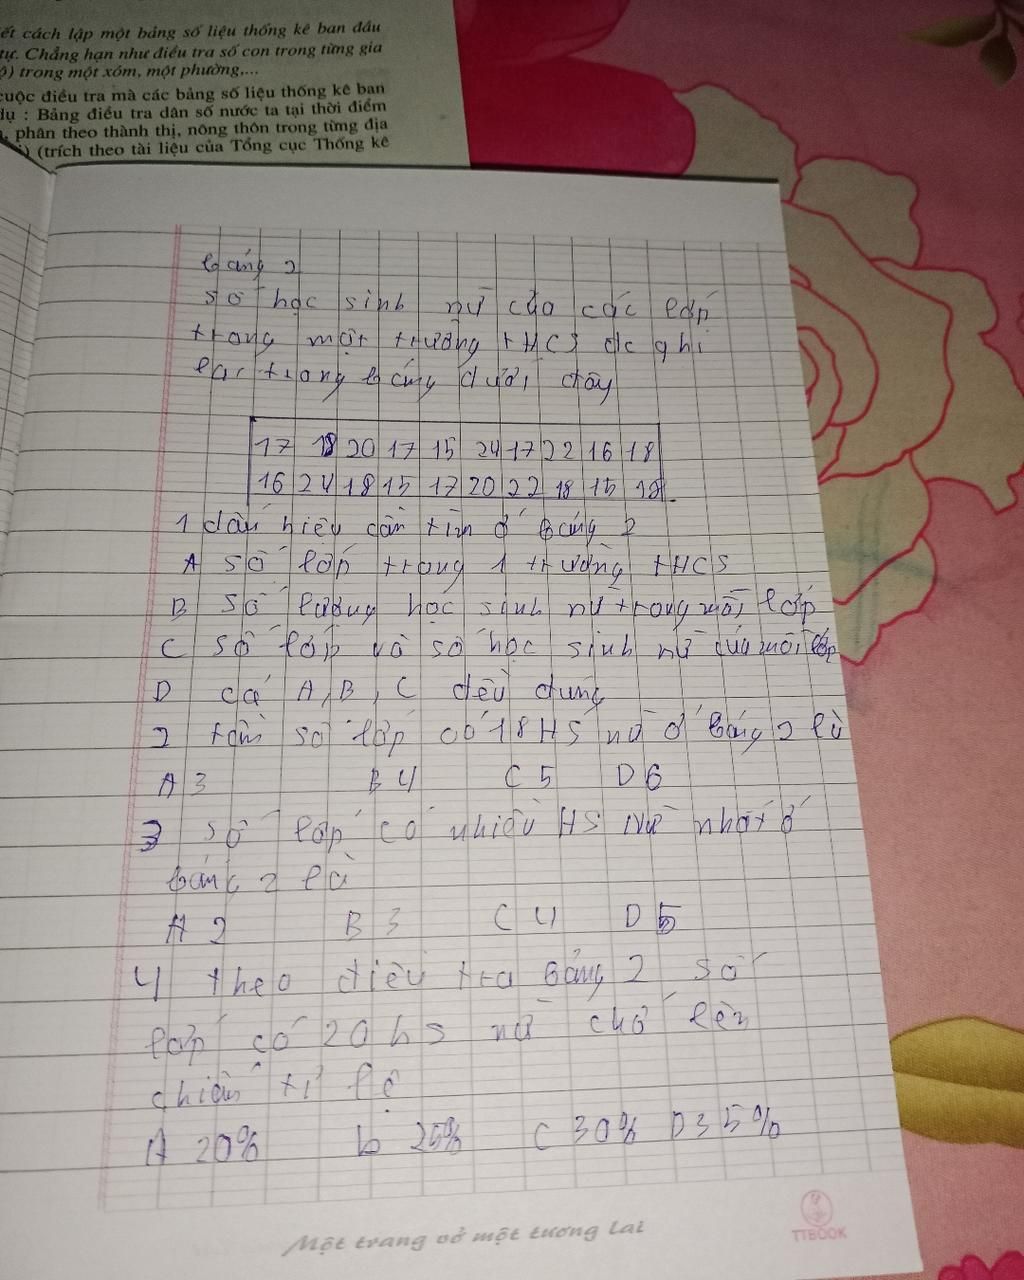 ết cách lập một bảng số liệu thống kê ban đầu
tự. Chẳng hạn như điều tra số con trong từng gia
ộ) trong một xóm, một phường,...
cuộc điều tra mà các bảng số liệu thống kê ban
dụ : Bảng điều tra dân số nước ta tại thời điểm
phân theo thành thị, nông thôn trong từng địa
(trích theo tài liệu của Tổng cục Thống kê
bảng 2
số học sinh nữ của các lớp
trong một trường THCS đc ghi
lại trong bảng dưới đây
17 18 20 17 15 24 17 22 16 18
16 24 18 15 17 20 22 18 15 18
1 dấu hiệu cần tìm ở bảng 2
A số lớp trong 1 trường THCS
B số lượng học sinh nữ trong mỗi lớp
C số lớp và số học sinh nữ của mỗi lớp
D cả A, B, C đều đúng
2 tần số lớp có 18 HS nữ ở bảng 2 là
A 3 B 4 C 5 D 6
3 số lớp có nhiều HS Nữ nhất ở
bảng 2 là
A 2 B 3 C 4 D 5
4 theo điều tra bảng 2 số
lớp có 20 hs nữ chở lên
chiếm tỉ lệ
A 20% b 25% C 30% D 35%
Một trang vở một tương lai
TTBOOK